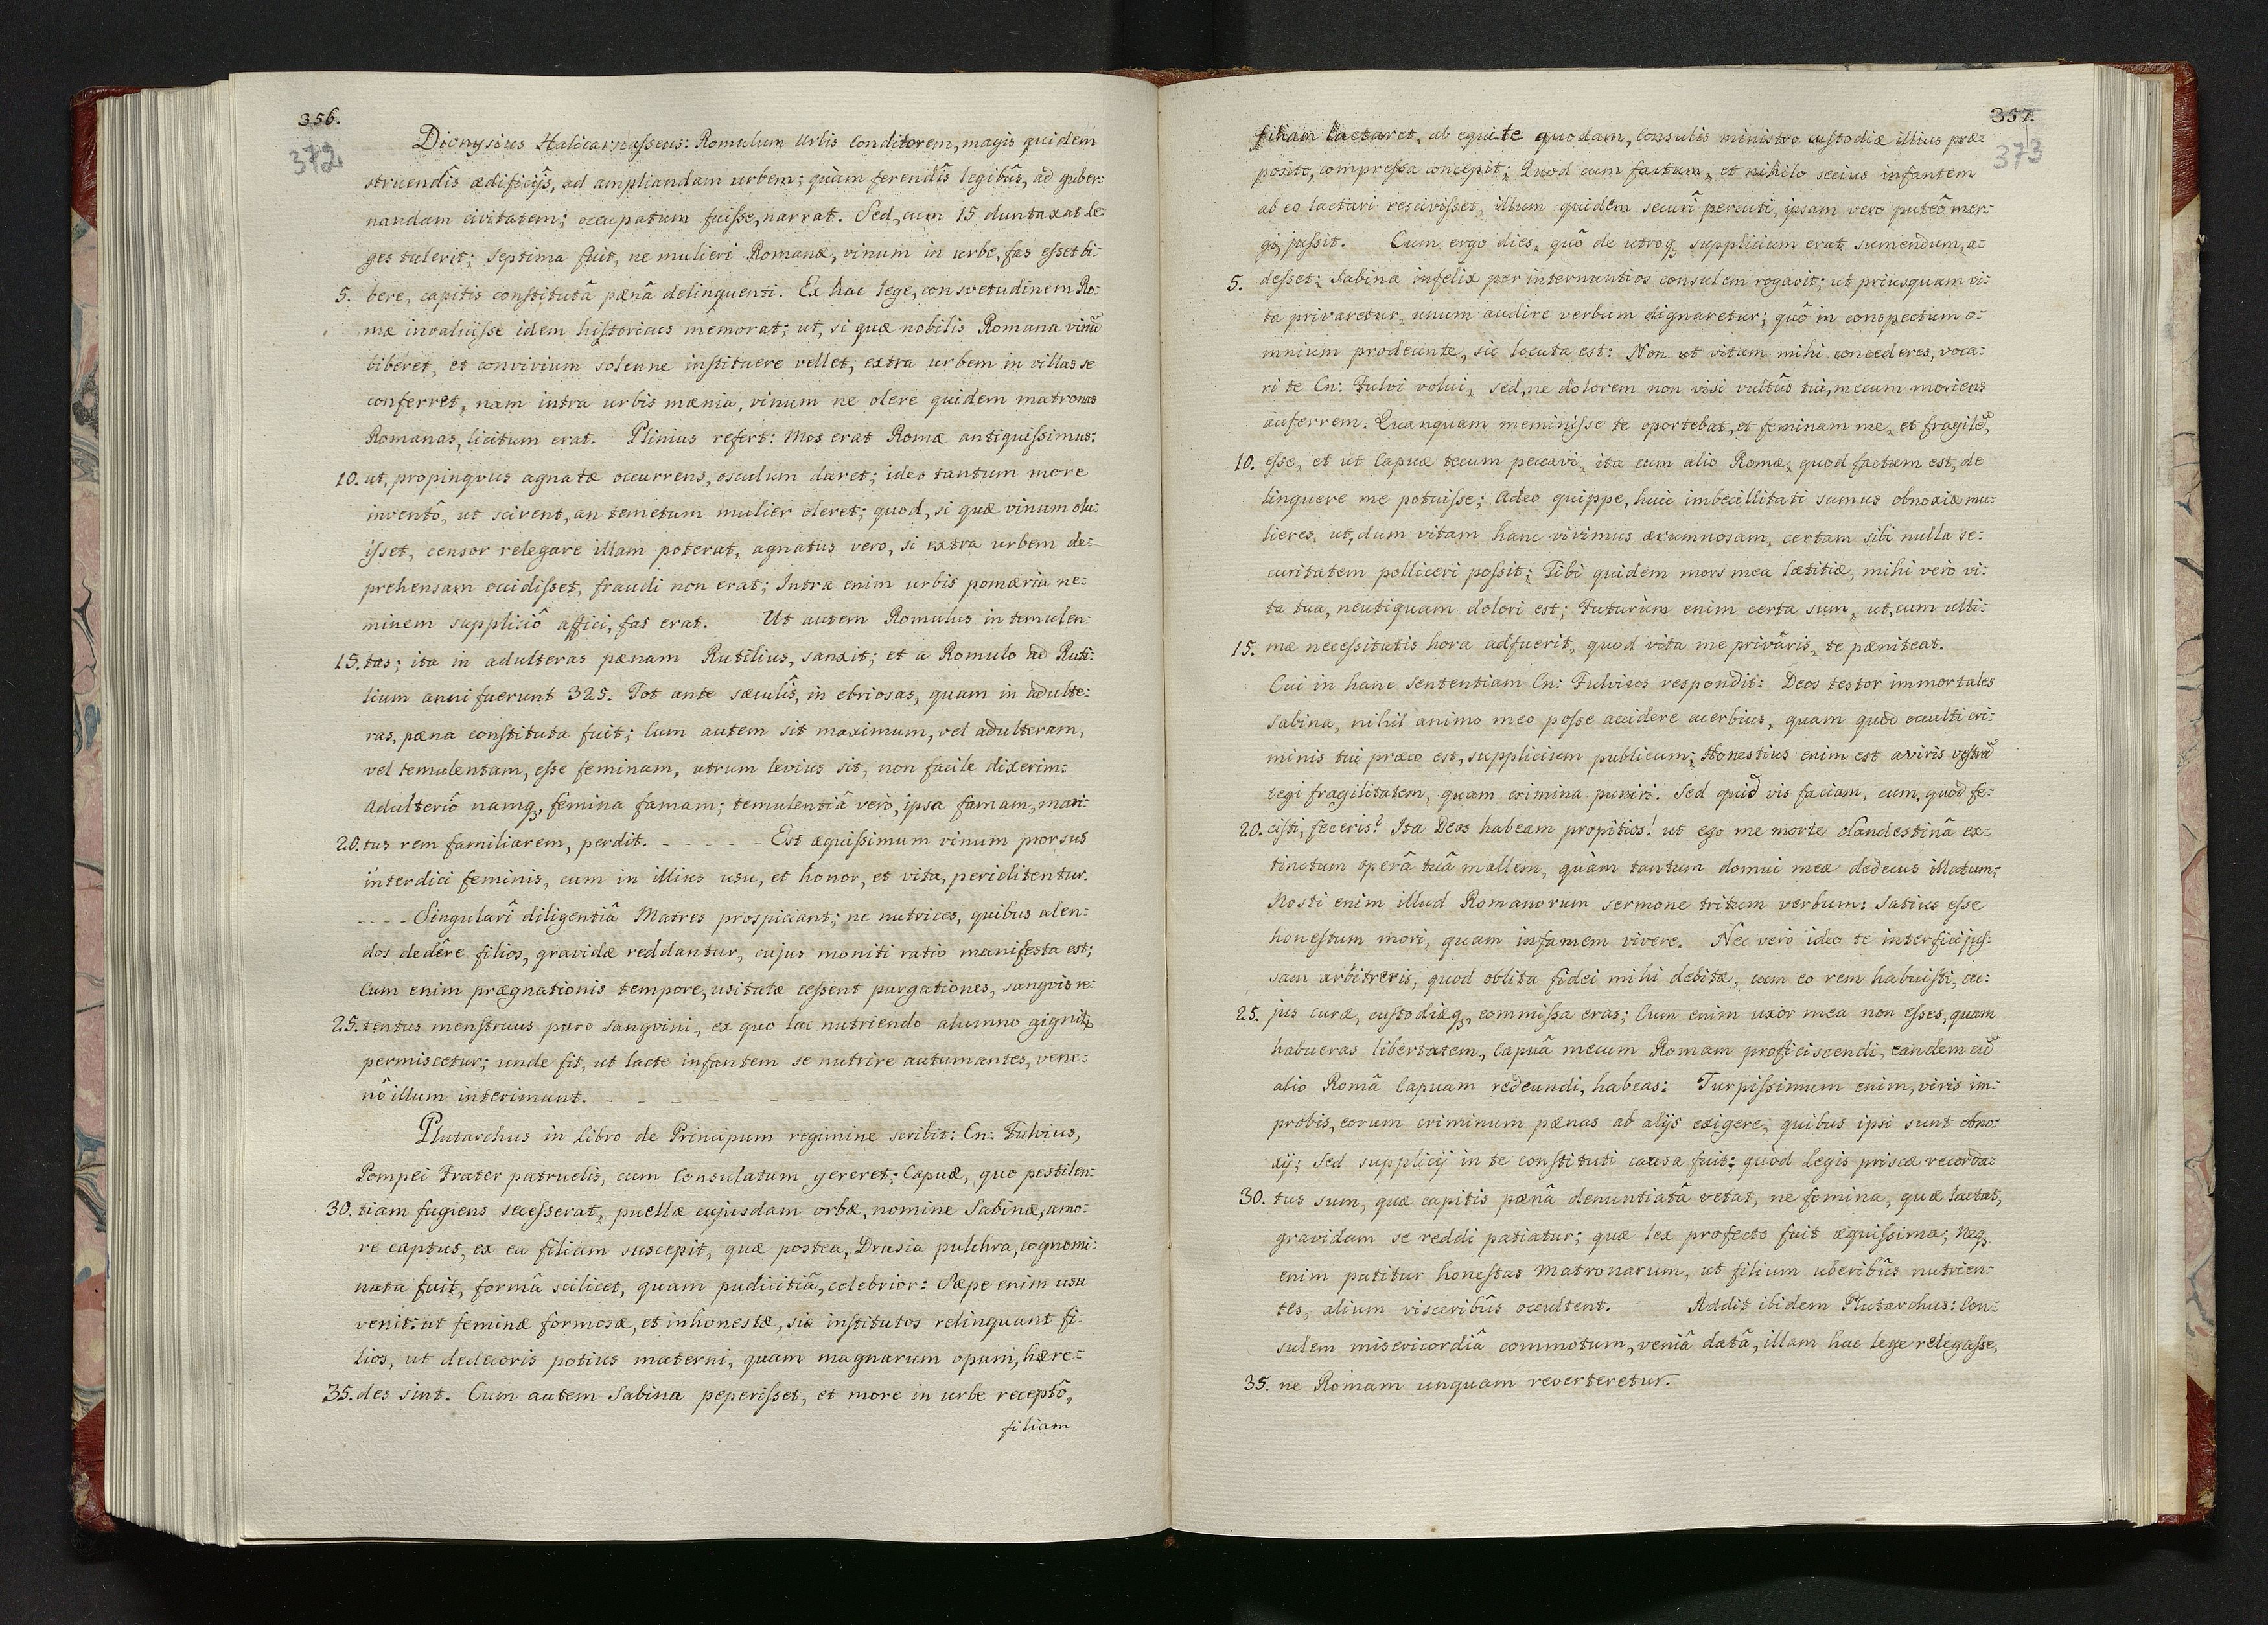 356.
372.
Dionysius Halicarnaſseus: Romulum Urbis Conditorem, magis quidem
struendîs ædificijs, ad ampliandam urbem; quàm ferendîs legibûs, ad guber-
nandam civitatem; occupatum fuiſse, narrat. Sed, cum 15 duntaxat Le-
ges tulerit; septima fuit, ne mulieri Romanæ, vinum in urbe, fas eſset bi-
5. bere, capitis conſtitutâ pænâ delinquenti. Ex hac lege, consvetudinem Ro-
mæ invaluiſse idem hiſtoricus memorat; ut, si quæ nobilis Romana vinū
biberet, et convivium solenne inſtituere vellet, extra urbem in villas se
conferret, nam intra urbis mænia, vinum ne olere quidem matronas
Romanas, licitum erat. Plinius refert: Mos erat Romæ antiquiſsimus:
10. ut, propinqvus agnatæ occurrens, osculum daret; ideo tantum more
inventô, ut scirent, an temetum mulier oleret; quod, si quæ vinum olu-
iſset, censor relegare illam poterat, agnatus vero, si extra urbem de-
prehensam occidiſset, fraudi non erat; Intra enim urbis pomæria ne-
minem suppliciô affici, fas erat. Ut autem Romulus in temulen-
15. tas; ita in adulteras pænam Rutilius, sanxit; et a Romulo ad Ruti-
lium anni fuerunt 325. Tot ante sæculîs, in ebriosas, quam in adulte-
ras, pæna conſtituta fuit; Cum autem sit maximum, vel adulteram,
vel temulentam, eſse feminam, utrum levius sit, non facile dixerim:
Adulteriô namq, femina famam; temulentiâ verò, ipsa famam, mari-
20. tus rem familiarem, perdit. - - - - - Est æquiſsimum vinum prorsus
interdici feminis, cum in illius usu, et honor, et vita, periclitentur.
- - - - Singularî diligentiâ Matres prospiciant; ne nutrices, quibus alen-
dos dedêre filios, gravidæ reddantur, cujus moniti ratio manifesta est;
Cum enim prægnationis tempore, usitatæ ceſsent purgationes, sangvis re-
25. tentus menſtruus puro sangvini, ex quo lac nutriendo alumno gignit,
permiscetur; unde fit, ut lacte infantem se nutrire autumantes, vene-
nô illum interimunt. - - - - - - -
Plutarchus in Libro de Principum regimine scribit: Cn: Fulvius,
Pompei Frater patruelis, cum Consulatum gereret; Capuæ, quo pestilen-
30. tiam fugiens seceſserat, puellæ cujusdam orbæ, nomine Sabinæ, amo-
re captus, ex ea filiam suscepit, quæ postea, Drusia pulchra, cognomi-
nata fuit, formâ scilicet, quam pudicitiâ, celebrior: Sæpe enim usu
venit: ut feminæ formosæ, et inhonestæ, sic inſtitutos relinquant fi-
lios, ut dedecoris potius materni, quam magnarum opum, hære-
35. des sint. Cum autem Sabina peperiſset, et more in urbe receptô,
filiam
357.
373
filiam lactaret, ab equite quodam, Consulis ministro custodiæ illius præ-
posito, compreſsa concepit; Quod cum factum, et nihilo secius infantem
ab eo lactari resciviſset, illum quidem securî percuti, ipsam vero puteô mer-
gi, juſsit. Cum ergo dies, quô de utroq supplicium erat sumendum, a-
5. deſset; Sabina infelix per internuntios consulem rogavit; ut priusquam vi-
ta privaretur, unum audire verbum dignaretur; quô in conspectum o-
mnium prodeunte, sic locuta est: Non ut vitam mihi concederes, voca-
ri te Cn: Fulvi volui, sed, ne dolorem non visi vultûs tui, mecum moriens
auferrem. Quanquam meminiſse te oportebat, et feminam me, et fragilē,
10. eſse, et ut Capuæ tecum peccavi, ita cum alio Romæ, quod factum est, de
linquere me potuiſse; Adeo quippe, huic imbecillitati sumus obnoxiæ mu-
lieres, ut, dum vitam hanc vivimus ærumnosam, certam sibi nulla se-
curitatem polliceri poſsit; Tibi quidem mors mea lætitiæ, mihi verò vi-
ta tua, neutiquam dolori est; Futurùm enim certa sum, ut, cum ulti-
15. mæ neceſsitatis hora adfuerit, quod vita me privâris, te pæniteat.
Cui in hanc sententiam Cn: Fulvius respondit: Deos testor immortales
Sabina, nihil animo meo poſse accidere acerbius, quam quod occulti cri-
minis tui præco est, supplicium publicum; Honestius enim est a viris veſtrā
tegi fragilitatem, quam crimina puniri. Sed quid vis faciam, cum, quod fe-
20. ciſti, feceris? Ita Deos habeam propitios! ut ego me morte clandestinâ ex-
tinctum operâ tuâ mallem, quàm tantum domui meæ dedecus illatum;
Nosti enim illud Romanorum sermone tritum verbum: Satius eſse
honeſtum mori, quam infamem vivere. Nec verò ideo te interfici juſ-
sam arbitreris, quod oblita fidei mihi debitæ, cum eo rem habuiſti, cu-
25. jus curæ, cuſtodiæq, commiſsa eras; Cum enim uxor mea non eſses, quam
habueras libertatem, Capuâ mecum Romam proficiscendi, eandem cū
alio Româ Capuam redeundi, habeas: Turpiſsimum enim, viris im-
probis, eorum criminum pænas ab alijs exigere, quibus ipsi sunt obno-
xij; Sed supplicij in te conſtituti causa fuit: quòd Legis priscæ recorda-
30. tus sum, quæ capitis pænâ denuntiatâ vetat, ne femina, quæ lactat,
gravidam se reddi patiatur; quæ lex profecto fuit æquiſsima; Neq
enim patitur honeſtas Matronarum, ut filium uberibûs nutrien-
tes, alium visceribûs occultent. Addit ibidem Plutarchus: Con-
sulem misericordiâ commotum, veniâ datâ, illam hac lege relegaſse,
35. ne Romam unquam reverteretur.